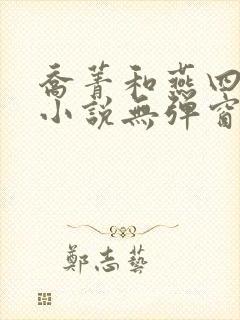 喬菁和燕四
小說無彈窗
鄭志藝